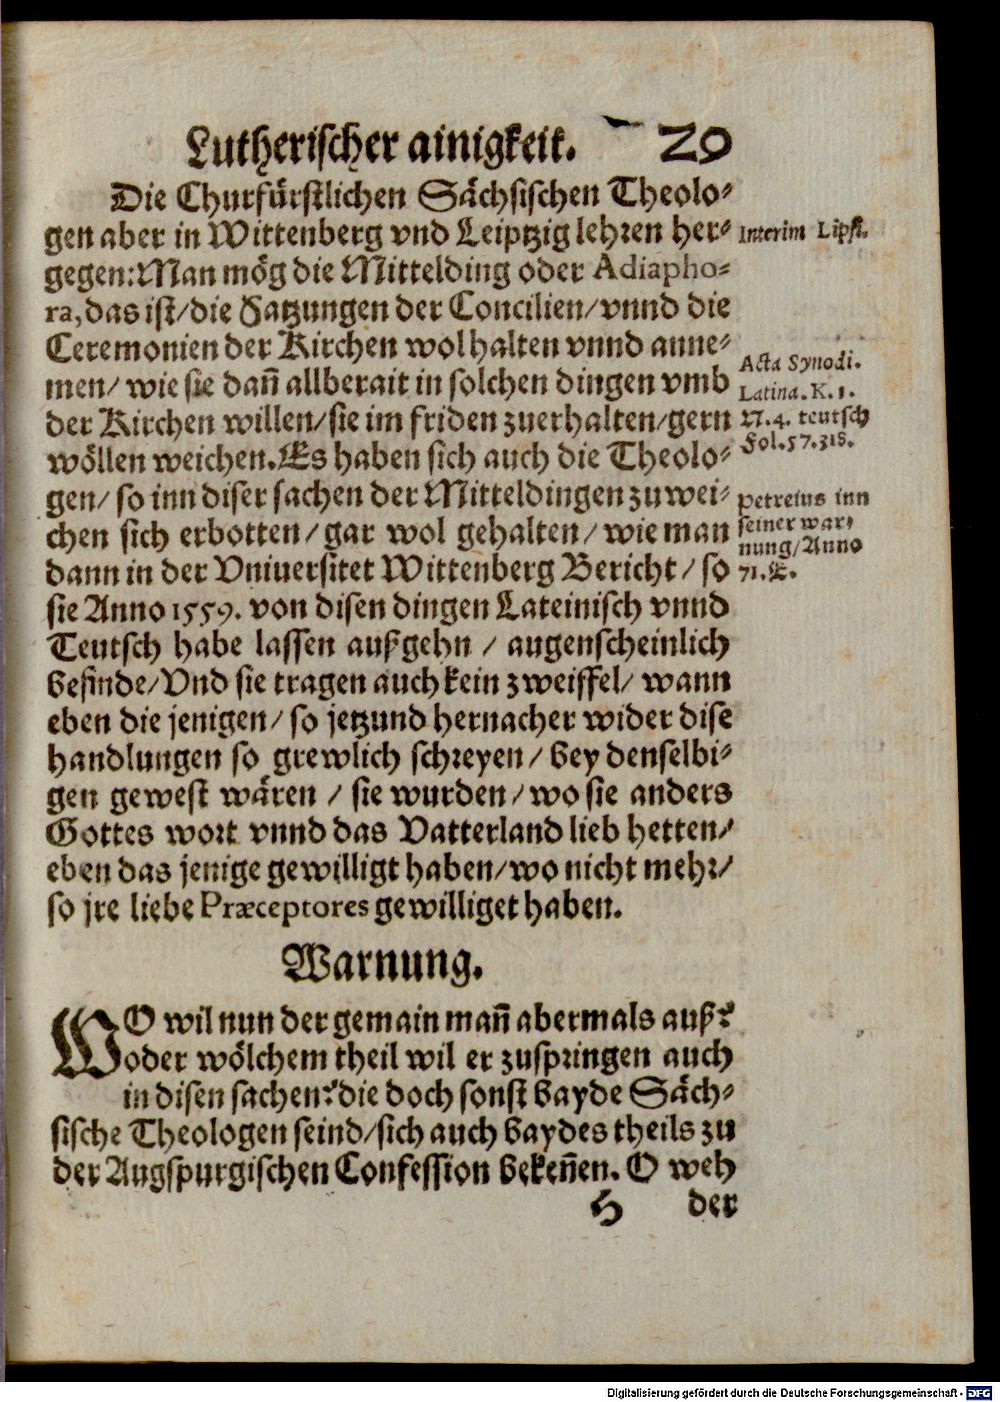 Lutherischer ainigkeit. 29
Die Churfürstlichen Sächsischen Theolo-
gen aber in Wittenberg vnd Leiptzig lehren her-
gegen: Man mög die Mittelding oder Adiapho-
ra, das ist/die Satzungen der Concilien/vnnd die
Ceremonien der Kirchen wol halten vnnd anne-
men/ wie sie dañ allberait in solchen dingen vmb
der Kirchen willen/sie im friden zuerhalten/gern
wöllen weichen. Es haben sich auch die Theolo-
gen/ so inn diser sachen der Mitteldingen zuwei-
chen sich erbotten/ gar wol gehalten/ wie man
dann in der Vniuersitet Wittenberg Bericht/ so
sie Anno 1559. von disen dingen Lateinisch vnnd
Teutsch habe lassen außgehn / augenscheinlich
befinde/Vnd sie tragen auch kein zweiffel/ wann
eben die jenigen/ so jetzund hernacher wider dise
handlungen so grewlich schreyen/ bey denselbi-
gen gewest wären / sie wurden/wo sie anders
Gottes wort vnnd das Vatterland lieb hetten/
eben das jenige gewilligt haben/wo nicht mehr/
so jre liebe Præceptores gewilliget haben.
Interim Lips.
Acta Synodi.
Latina. K. 1.
N. 4. teutsch
Fol. 57. 318.
Petreius inn
seiner war-
nung/Anno
71. E.
Warnung.
WO wil nun der gemain mañ abermals auß?
oder wölchem theil wil er zuspringen auch
in disen sachen? die doch sonst bayde Säch-
sische Theologen seind/sich auch baydes theils zu
der Augspurgischen Confession bekeñen. O weh
H der
Digitalisierung gefördert durch die Deutsche Forschungsgemeinschaft - DFG